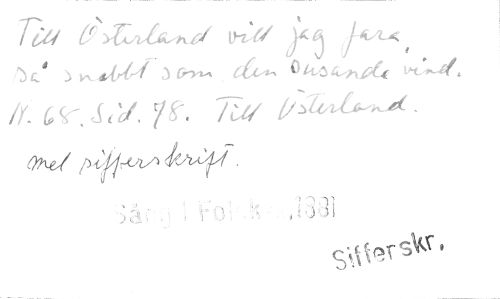 Till Österland vill jag fara,
så snabbt som den susande vind.
N. 68. Sid. 78. Till Österland.
mel sifferskrift.
Sång i Folksk.,1881
Sifferskr.